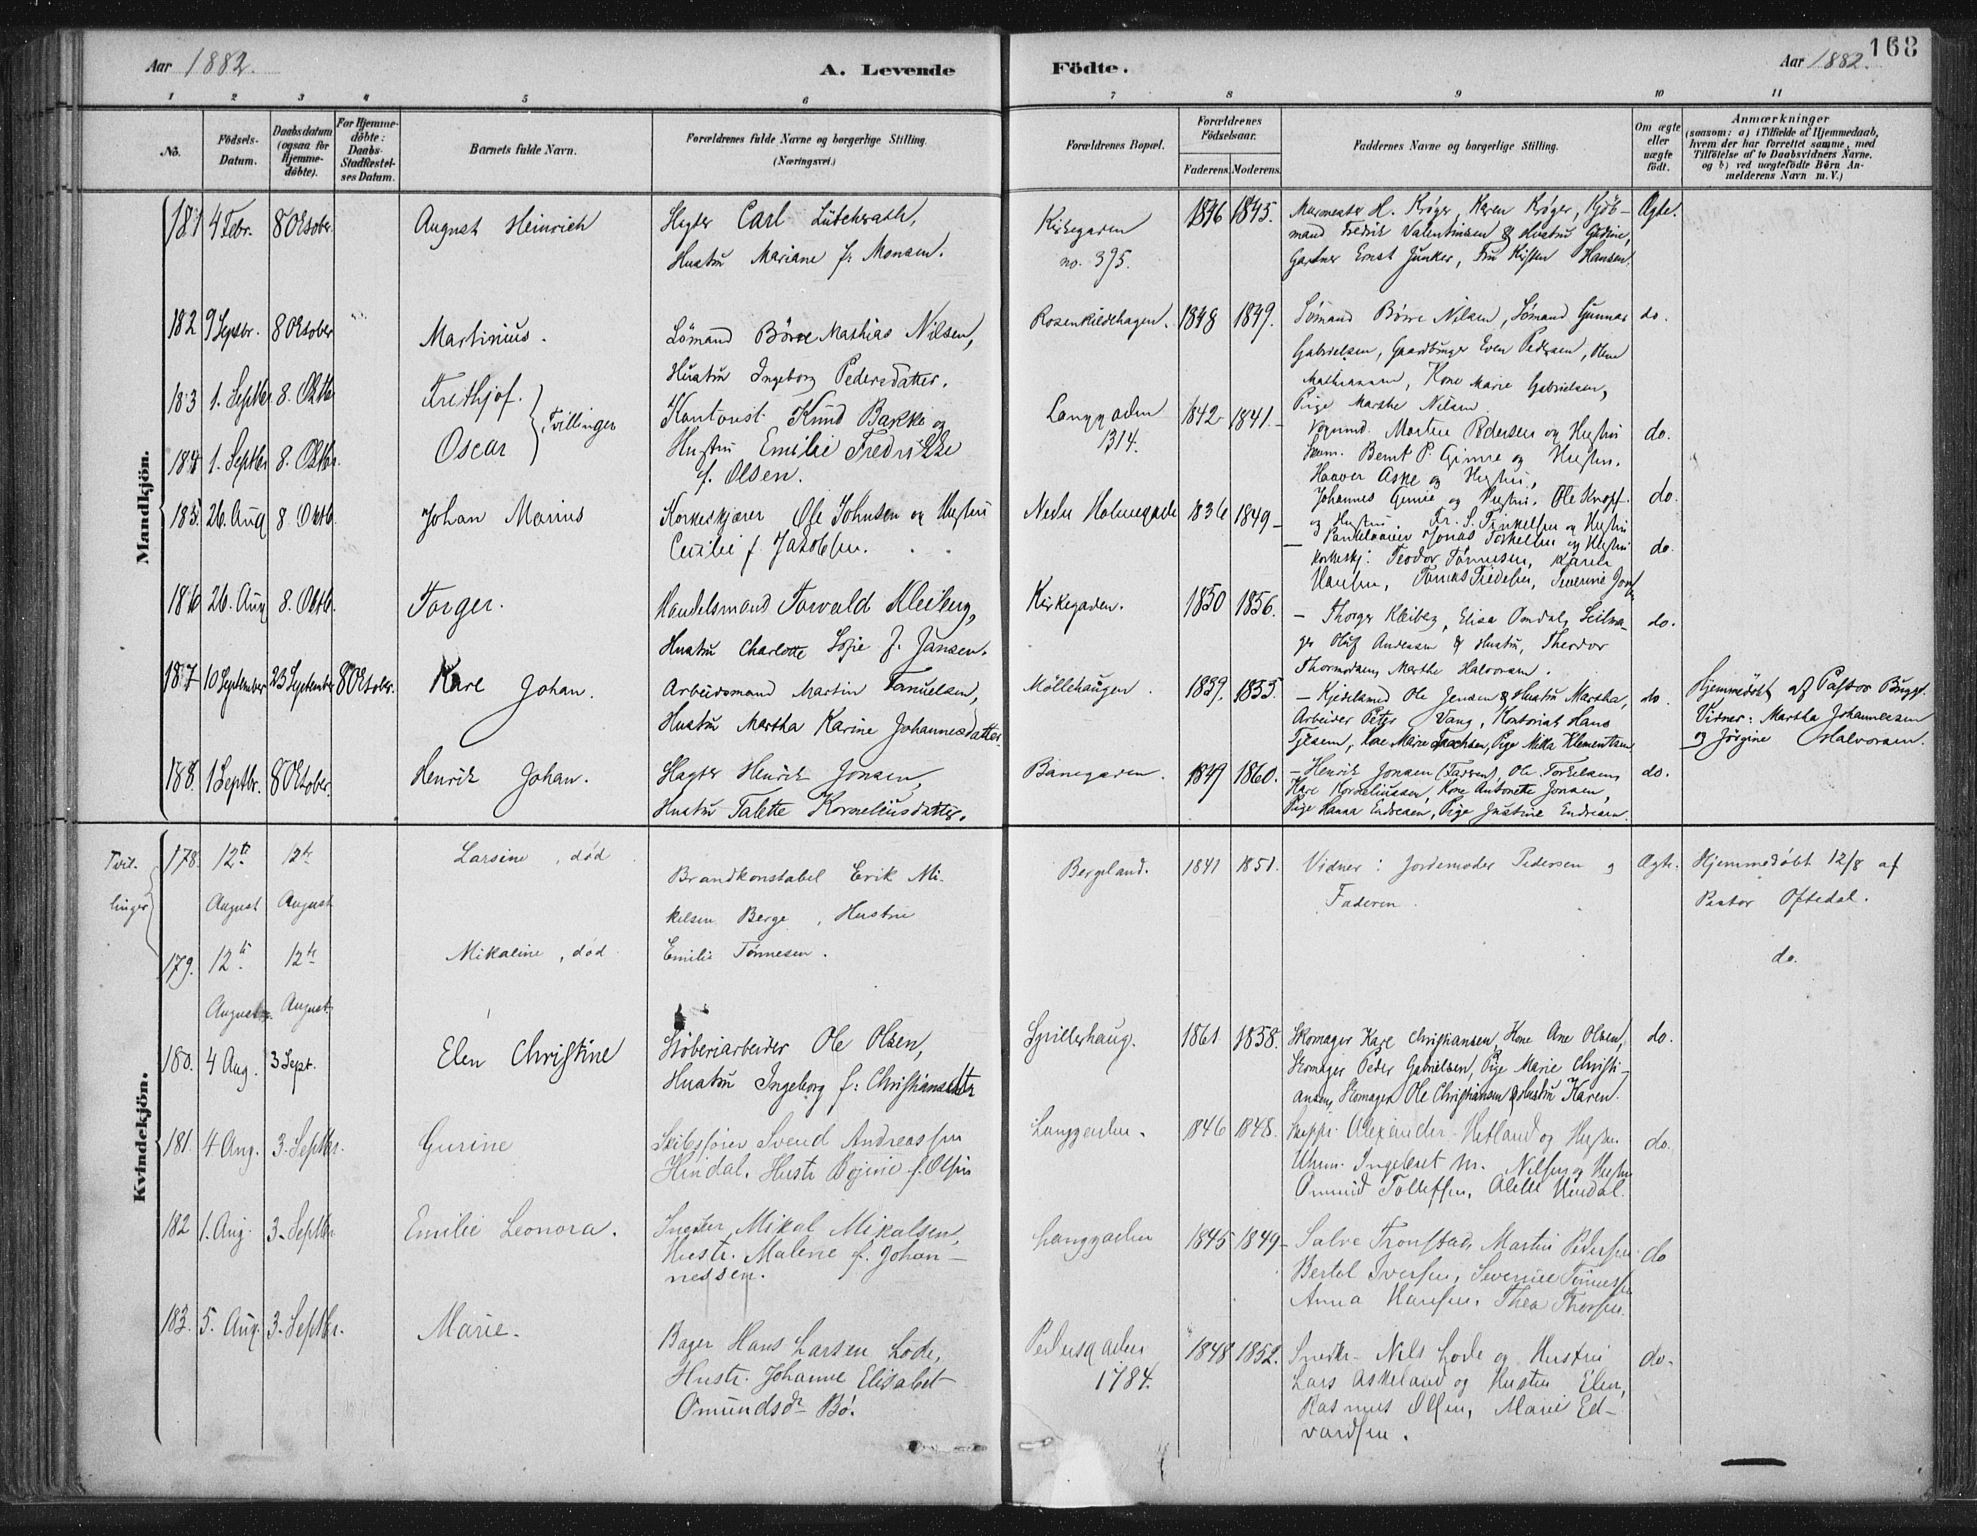 Aar 1882.
A. Levende
Födte.
Aar 1882.
168
1 2 3 4 5 6 7 8 9 10 11
No.
Födsels-
Datum.
Daabsdatum
(ogsaa for
Hjemme-
döbte).
For Hjemme-
döbte:
Daabs-
Stadfestel-
ses Datum.
Barnets fulde Navn.
Forældrenes fulde Navne og borgerlige Stilling.
(Næringsvei.)
Forældrenes Bopæl.
Forældrenes
Födselsaar.
Faderens. Moderens.
Faddernes Navne og borgerlige Stilling.
Om ægte
eller
uægte
født.
Anmærkninger
(saasom: a) i Tilfælde af Hjemmedaab,
hvem der har forrettet samme, med
Tilföielse af to Daabsvidners Navne,
og b) ved uægtefödte Börn An-
melderens Navn m. V.)
Mandkjön.
181 4 Febr. 8 Oktober. August Heinrich
Slagter Carl Lütcherath,
Hustru Mariane f. Monsen.
Kirkegaden
no. 395.
1846 1845.
Murmester H. Krøger, Karen Krøger, Kjöb-
mand Fredrik Valentinsen & Hustru
Gartner Ernst Junker, Fru Kristen Hansen.
Ægte.
182 9 Septbr. 8 Oktober Martinius.
Sømand Börre Mathias Nilsen,
Hustru Ingeborg Pedersdatter.
Rosenkildehagen. 1848 1849.
Sømand Börre Nilsen, Sømand Gunnar
Gabrielsen, Gaardbruger Even Pedersen,
Kone Marie Gabrielsen,
Pige Marthe Nilsen
do.
183 1. Septbr 8. Oktbr Frithjof.
184 1. Septbr 8. Oktbr. Oscar
Tvillinger
Kontorist Knud Bakke og
Hustru Emilie Fredrikke
f. Olsen.
Langgaden
1314.
1842 1841.
Martin Pedersen og Hustru
Bernt P. Gimre og Hustru,
Haaver Aske og Hustru,
do.
185. 26. Aug 8 Oktb. Johan Marius
Korkeskjærer Ole Johnsen og Hustru
Cecilie f. Jakobsen.
Nedre Holmegade 1836 1849
Johannes Gimre og Hustru. Ole Knopf
og Hustru
Jonas Torkelsen og Hustru
Korkeskj: Teodor Tönnesen, Karen
Hansen,
do.
do.
186 26. Aug 8. Oktb. Torger.
Handelsmand Torvald Kleiberg,
Hustru Charlotte Sofie f. Jansen.
Kirkegaden. 1850 1856.
Thorger Kleiberg, Elisa Omdal, Seilma-
ger Oluf Andersen & Hustru, Theodor
Thormodsen, Marthe Halvorsen.
do.
187 10 September 23 September 8 Oktober. Karl Johan.
Arbeidsmand Martin Tanuelsen,
Hustru Martha Karine Johannesdatter.
Möllehaugen. 1839. 1853.
Kjedelsmed Ole Jensen & Hustru Martha,
Arbeider Peter Vang, Kontorist Hans
Pige Mikla Klementsen
do.
Hjemmedöbt af Pastor Bugge.
Vidner: Martha Johannesen
og Jörgine Halvorsen.
188. 1 Septbr. 8 Oktober. Henrik Johan.
Slagter Henrik Jonsen,
Hustru Talette Korneliusdatter.
Banegaden. 1849 1860.
Henrik Jonsen (Faderen), Ole Torkelsen,
Korneliussen, Kone Antonette Jonsen,
Pige Hanna Endresen, Pige Justine Endresen.
do.
Kvindekjön.
Tvil-
linger
178. 12te
August
12te
August
Larsine, död
Brandkonstabel Erik Mi-
kelsen Berge, Hustru
Emilie Tönnesen.
Bergeland. 1841 1851.
Vidner: Jordemoder Pedersen og
Faderen.
Ægte.
Hjemmedöbt 12/8 af
Pastor Oftedal.
179. 12te
August
12te
August
Mikaline, död.
do.
180. 4 Aug. 3 Sept. Elen Christine
Støberiarbeider Ole Olsen,
Hustru Ingeborg f: Christiansdtr
Spilderhaug. 1861 1858.
Skomager Karl Christiansen, Kone Ane Olsen,
Skomager Peder Gabrielsen, Pige Marie Christi-
ansen, Skomager Ole Christiansen & Hustru Karen.
do.
181. 4 Aug. 3. Septbr. Gurine
Skibsförer Svend Andreassen
Hindal, Hustr. f. Olsen
Langgaden. 1846 1848.
Alexander Hetland og Hustru.
Ingebret M. Nilsen og Hustru
Ommund Tollefsen, Alette Hindal.
do.
182 1. Aug. 3. Septbr Emilie Leonora.
Mikal Mikalsen,
Hustr. Malene f. Johan-
nessen.
Langgaden 1845 1849
Salve Tronstad, Martin Pedersen
Bertel Iversen, Severine Tönnessen
Anna Hansen. Thea Thorsen.
do
183. 5. Aug. 3. Septbr. Marie.
Bager Hans Larsen Lode,
Hustr. Johanne Elisabet
Omundsdr Bö.
Pedersgaden
1784.
1848 1852.
Snedk. Nils Lode og Hustru
Lars Askeland og Hustru Elen,
Rasmus Olsen, Marie Ed-
vardsen.
do.